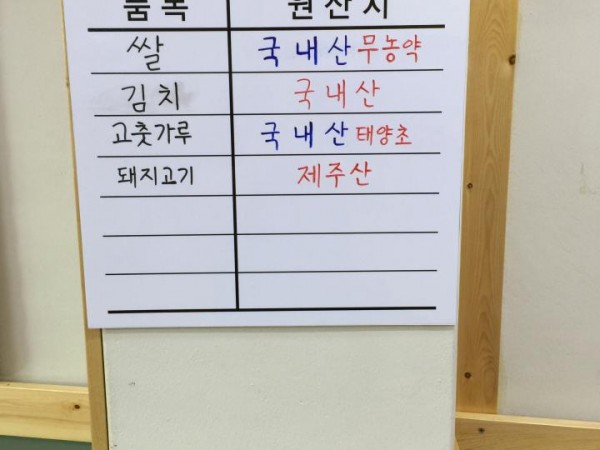 품목 원산지
쌀 국내산 무농약
김치 국내산
고춧가루 국내산 태양초
돼지고기 제주산